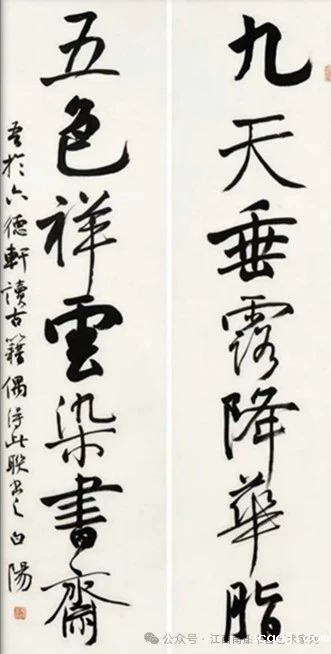 九天垂露降華脂
五色祥雲染書齋
吾於六德軒讀古籍偶得此联书之 白陽
公众号